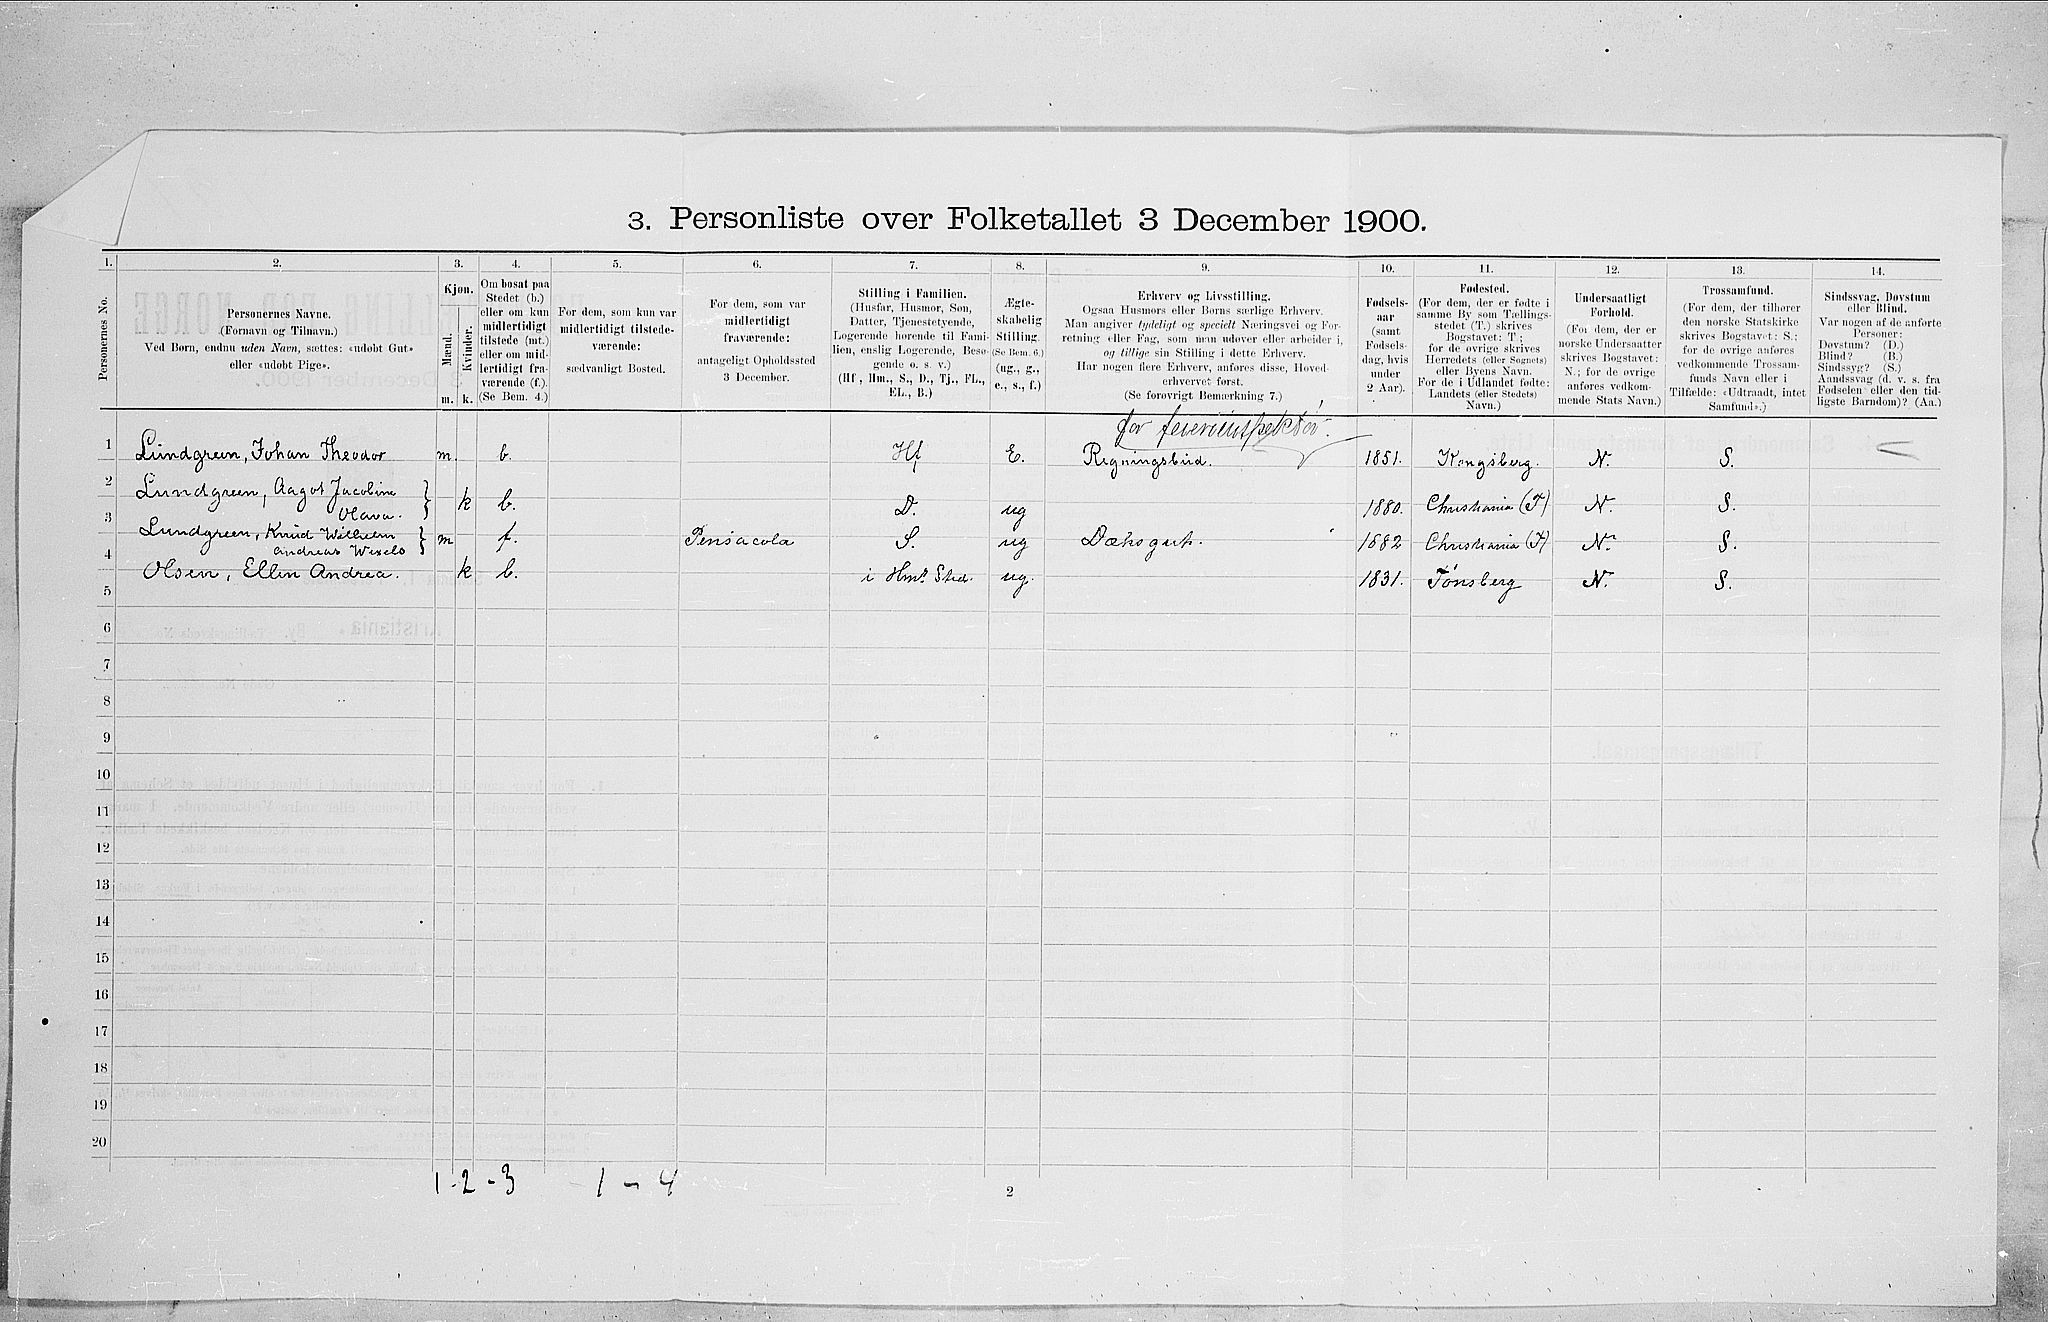 3. Personliste over Folketallet 3 December 1900.
1. 2. 3. 4. 5. 6. 7. 8. 9. 10. 11. 12. 13. 14.
Personernes No.
Personernes Navne.
(Fornavn og Tilnavn.)
Ved Børn, endnu uden Navn, sættes: «udøbt Gut»
eller «udøbt Pige».
Kjøn.
Mænd.
Kvinder.
m. k.
Om bosat paa
Stedet (b.)
eller om kun
midlertidigt
tilstede (mt.)
eller om mid-
lertidigt fra-
værende (f.).
(Se Bem. 4.)
For dem, som kun var
midlertidigt tilstede-
værende:
sædvanligt Bosted.
For dem, som var
midlertidigt
fraværende:
antageligt Opholdssted
3 December.
Stilling i Familien.
(Husfar, Husmor, Søn,
Datter, Tjenestetyende,
Logerende hørende til Fami-
lien, enslig Logerende, Besø-
gende o. s. v.)
(Hf, Hm., S., D., Tj., FL.,
EL., B.)
Ægte-
skabelig
Stilling.
(Se Bem. 6.)
(ug., g.,
e., s., f.)
Erhverv og Livsstilling.
Ogsaa Husmors eller Børns særlige Erhverv.
Man angiver tydeligt og specielt Næringsvei og For-
retning eller Fag, som man udøver eller arbeider i,
og tillige sin Stilling i dette Erhverv.
Har nogen flere Erhverv, anføres disse, Hoved-
erhvervet først.
(Se forøvrigt Bemærkning 7.)
Fødsels-
aar
(samt
Fødsels-
dag, hvis
under
2 Aar).
Fødested.
(For dem, der er fødte i
samme By som Tællings-
stedet (T.) skrives
Bogstavet: T;
for de øvrige skrives
Herredets (eller Sognets)
eller Byens Navn.
For de i Udlandet fødte:
Landets (eller Stedets)
Navn.)
Undersaatligt
Forhold.
(For dem, der er
norske Undersaatter
skrives Bogstavet:
N.; for de øvrige
anføres vedkom-
mende Stats Navn.)
Trossamfund.
(For dem, der tilhører
den norske Statskirke
skrives Bogstavet: S.;
for de øvrige anføres
vedkommende Trossam-
funds Navn eller i
Tilfælde: «Udtraadt, intet
Samfund».)
Sindssvag, Døvstum
eller Blind.
Var nogen af de anførte
Personer:
Døvstum? (D.)
Blind? (B.)
Sindssyg? (S.)
Aandssvag (d. v. s. fra
Fødselen eller den tid-
ligste Barndom)? (Aa.)
for feierinspektør.
1 Lundgreen, Johan Theodor m. b. Hf E. Regningsbud. 1851. Kongsberg. N. S.
2 Lundgreen, Aagot Jacobine
Olava. k b. D. ug 1880. Christiania (T) N. S.
3 Lundgreen, Knud Wilhelm
Andreas Wexels m f. Pensacola S. ug Dæksgut. 1882 Christiania (T) N. S.
4 Olsen, Ellen Andrea. k b. i Hms Sted. ug. 1831. Tønsberg N. S.
5
6
7
8
9
10
11
12
13
14
15
16
17
18
19
20
1-2-3 1-4
2